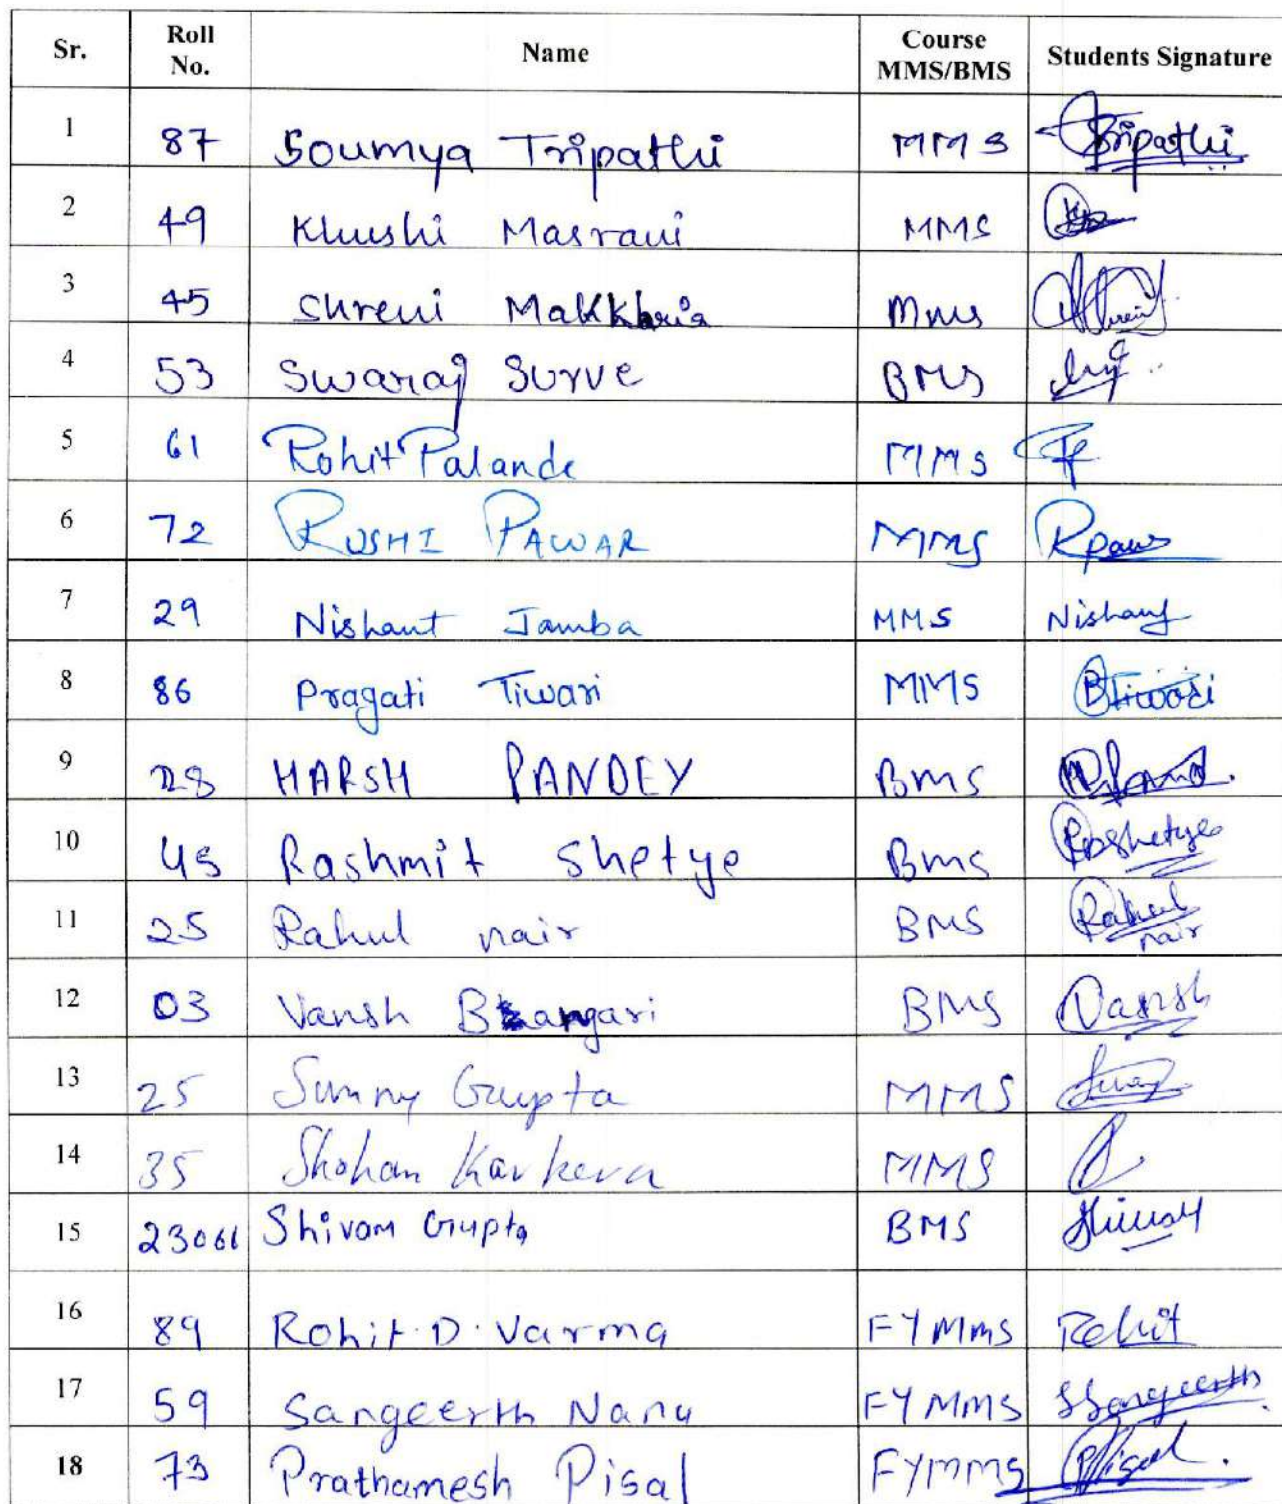 Sr. Roll No. Name Course MMS/BMS Students Signature
1 87 Soumya Tripathi MMS Tripathi
2 49 Khushi Masrani MMS
3 45 Shreni Makkharia Mms
4 53 Swaraj Surve BMS
5 61 Rohit Palande MMS
6 72 RUSHI PAWAR MMS Rpawr
7 29 Nishant Jamba MMS Nishant
8 86 Pragati Tiwari MMS PTiwari
9 28 HARSH PANDEY BMS
10 45 Rashmit Shetye Bms RShetye
11 25 Rahul nair BMS Rahul nair
12 03 Vansh Bhangari BMS Vansh
13 25 Sunny Gupta MMS
14 35 Shohan Karkera MMS
15 23061 Shivam Gupta BMS Shivam
16 89 Rohit.D.Varma FYMMS Rohit
17 59 Sangeerth Nanu FYMMS SSangeerth
18 73 Prathamesh Pisal FYMMS PPisal